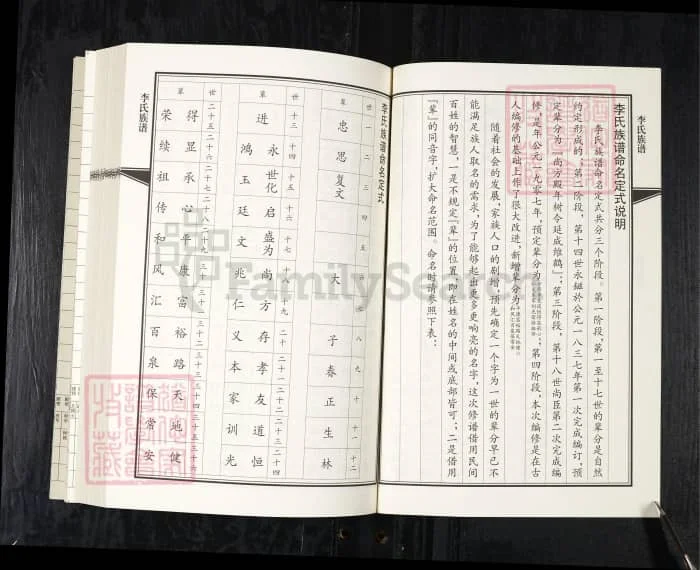 李氏族谱
李氏族谱命名定式说明
李氏族谱命名定式共分三个阶段。第一阶段,第一至十七世的辈分是自然
约定形成的;第二阶段,第十四世永礠於公元一八三七年第一次完成编订,预
定辈分为:尚方殿年树令延成维鹤
第三阶段,第十八世尚臣第二次完成编
修,是年公元一九零七年,预定辈分为:
第四阶段,本次编修是在古
人编修的基础上作了很大改进,新增辈分为:
随着社会的发展,家族人口的剧增,预先确定一个字为一世的辈分早已不
能满足族人取名的需求,为了能够起出更多更响亮的名字,这次修谱借用民间
百姓的智慧,一是不规定『辈』的位置,即在姓名的中间或底部皆可;二是借用
『辈』的同音字,扩大命名范围。命名时请参照下表:
李氏族谱命名定式
世 一 二 三 四 五 六 七 八 九 十 十一 十二
辈 忠 思 复文 大 子 春 正 生 林
世 十三 十四 十五 十六 十七 十八 十九 二十 二十一 二十二 二十三 二十四
辈 进 永 世化 启 盛为 尚 方 存 孝 友 道 恒
鸿 玉 廷 文 兆 仁 义 本 家 训 光
世 二十五 二十六 二十七 二十八 二十九 三十 三十一 三十二 三十三 三十四 三十五 三十六
辈 得 显 承 心 平 康 富 裕 路 天 地 健
荣 续 祖 传 和 风 汇 百 泉 保 常 安
李氏族谱
FamilySearch